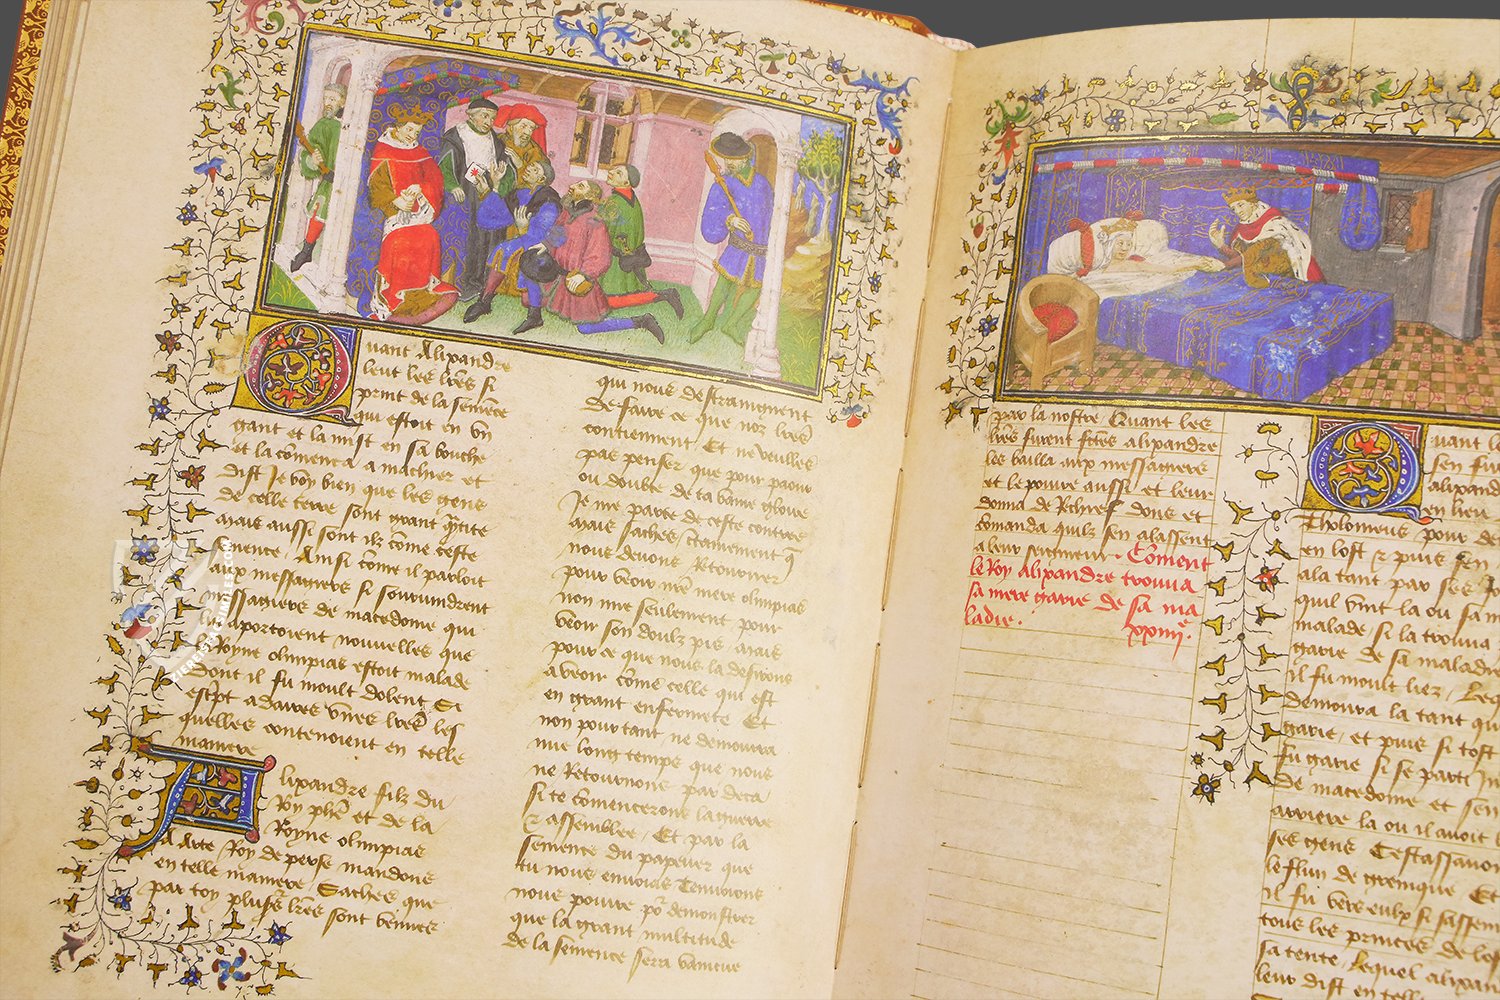 Quant Alixandre
leut les lr̃es si
print de la semẽce
qui estoit en vn
gant et la mist en sa bouche
et la cõmenca a macher et
dist Je voy bien que les gens
de celle terre sont grant q̃tite
mais aussi sont ilz cõme ceste
semence Ainsi cõme il parloit
aux messagiers si souruindrent
messagiers de macedome qui
luy aportoient nouuelles que
la Royne olimpias estoit malade
Dont il fu moult dolent Si
escript a daires vnes lr̃es les
quelles contenoient en telle
maniere
Alixandre filz du
Roy phẽ et de la
Royne olimpias
A darre Roy de perse mandons
en telle maniere Saches que
par toy plusrs lr̃es sont venues
qui nous destraingnent
de faire ce que noz lr̃es
contiennent Et ne veulles
pas penser que pour paour
ou doubte de ta vaine gloire
Je me parte de ceste contree
mais saches certainement q̃
nous deuons Retourner
pour veoir nr̃e mere olimpias
non mie seulement pour
veoir son doulz pis mais
pour ce que nous la desirons
a veoir cõme celle qui est
en grant enfermete Et
non pourtant ne demourra
mie long temps que nous
ne Retournons par deca
si te cõmencerons la guerre
⁊ assemblee Et par la
semence du papeuer que
tu nous enuoias Tenuoions
nous poiure po demonstrer
que la grant multitude
de la semence serra vaincue
par la nostre Quant les
lr̃es furent fctes alixandre
les bailla aux messagiers
et le poiure aussi et leur
donna de Riches dons et
cõmanda quilz sen alassent
a leur seigneur. Cõment
le Roy alixandre trouua
sa mere garie de sa ma
ladie. xxiiije
Quant le
sen fu
alixand
en lieu
Tholomeus pour de
en lost ⁊ puis sen
ala tant par ses
quil vint la ou sa m
malade si la trouua
garie de sa maladie
il fu moult liez Leq
demoura la tant qu
garie et puis si tost
fu garie si se parti
de macedome et sen
arriere la ou il auoit
ses gens Cestassauoi
le flun de grenique Et
il fu vers eulx si sassem
tous les princes de los
sa tente Lequel alixan
leur dist en telle